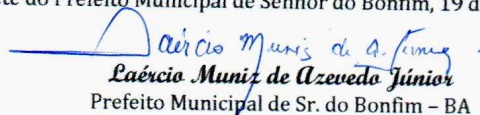 te do Prefeito Municipal de Senhor do Bonfim, 19 d
Laércio Muniz de A. Júnior
Laércio Muniz de Azevedo Júnior
Prefeito Municipal de Sr. do Bonfim – BA